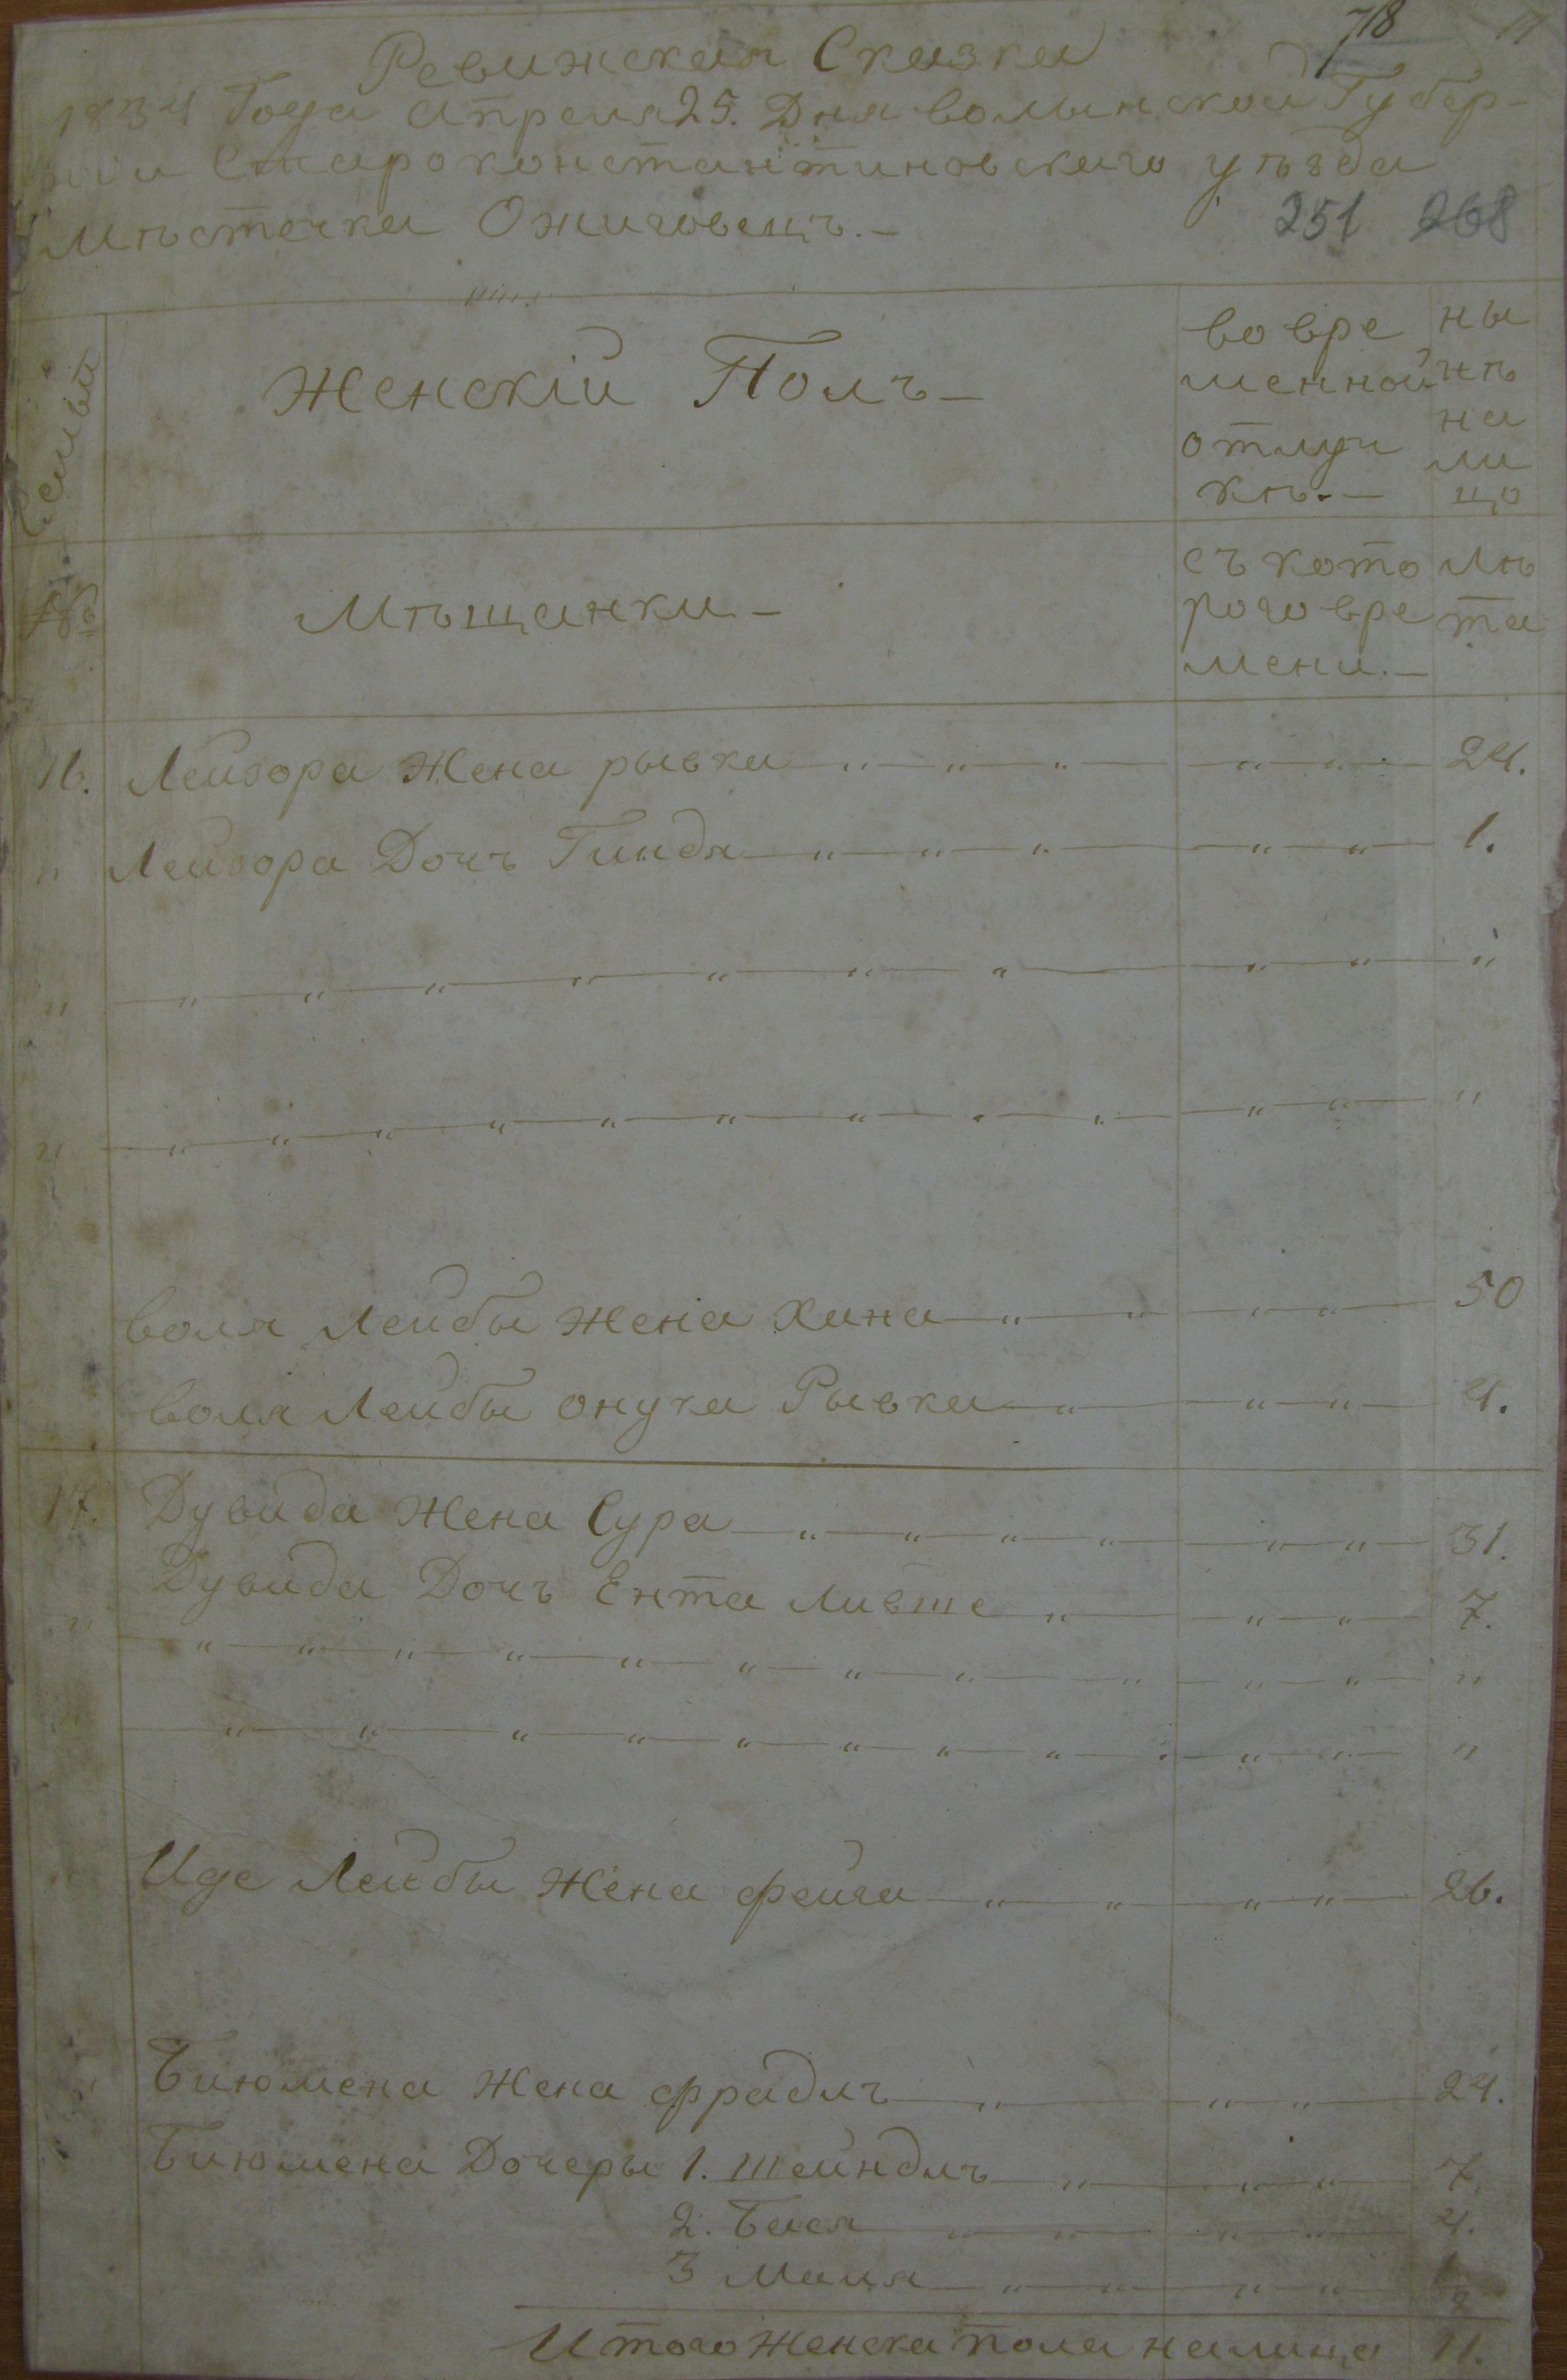 718 17
Ревижская Сказка
1834 Года Апреля 25. Дня волынской Губер-
ніи Староконстантиновскаго уѣзда
Мѣстечка Ожиговецъ.-
251 268
№ Семьи
Женскій Полъ-
во вре
менной
отлуч
кѣ.-
ны
нѣ
на
ли
цо
Мѣщанки-
съ кото
раго вре
мени.-
Лѣ
та
16. Лейзора Жена рывка 24.
" Лейзора Дочъ Гиндя 1.
воля Лейбы жена Хана 50
воля Лейбы онука Рывка 4.
17. Дувида Жена Сура 31.
Дувида Дочъ Ента Ливше 7.
Иде Лейбы Жена фейга 26.
Биюмена Жена фрадлъ 24.
Биюмена Дочеры 1. Шейндлъ 7.
2. Бася 4.
3 Маля 1/2
Итого Женска пола налицо 11.